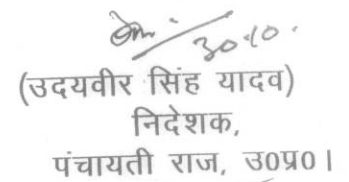 30.10.
(उदयवीर सिंह यादव)
निदेशक,
पंचायती राज, उ0प्र0।